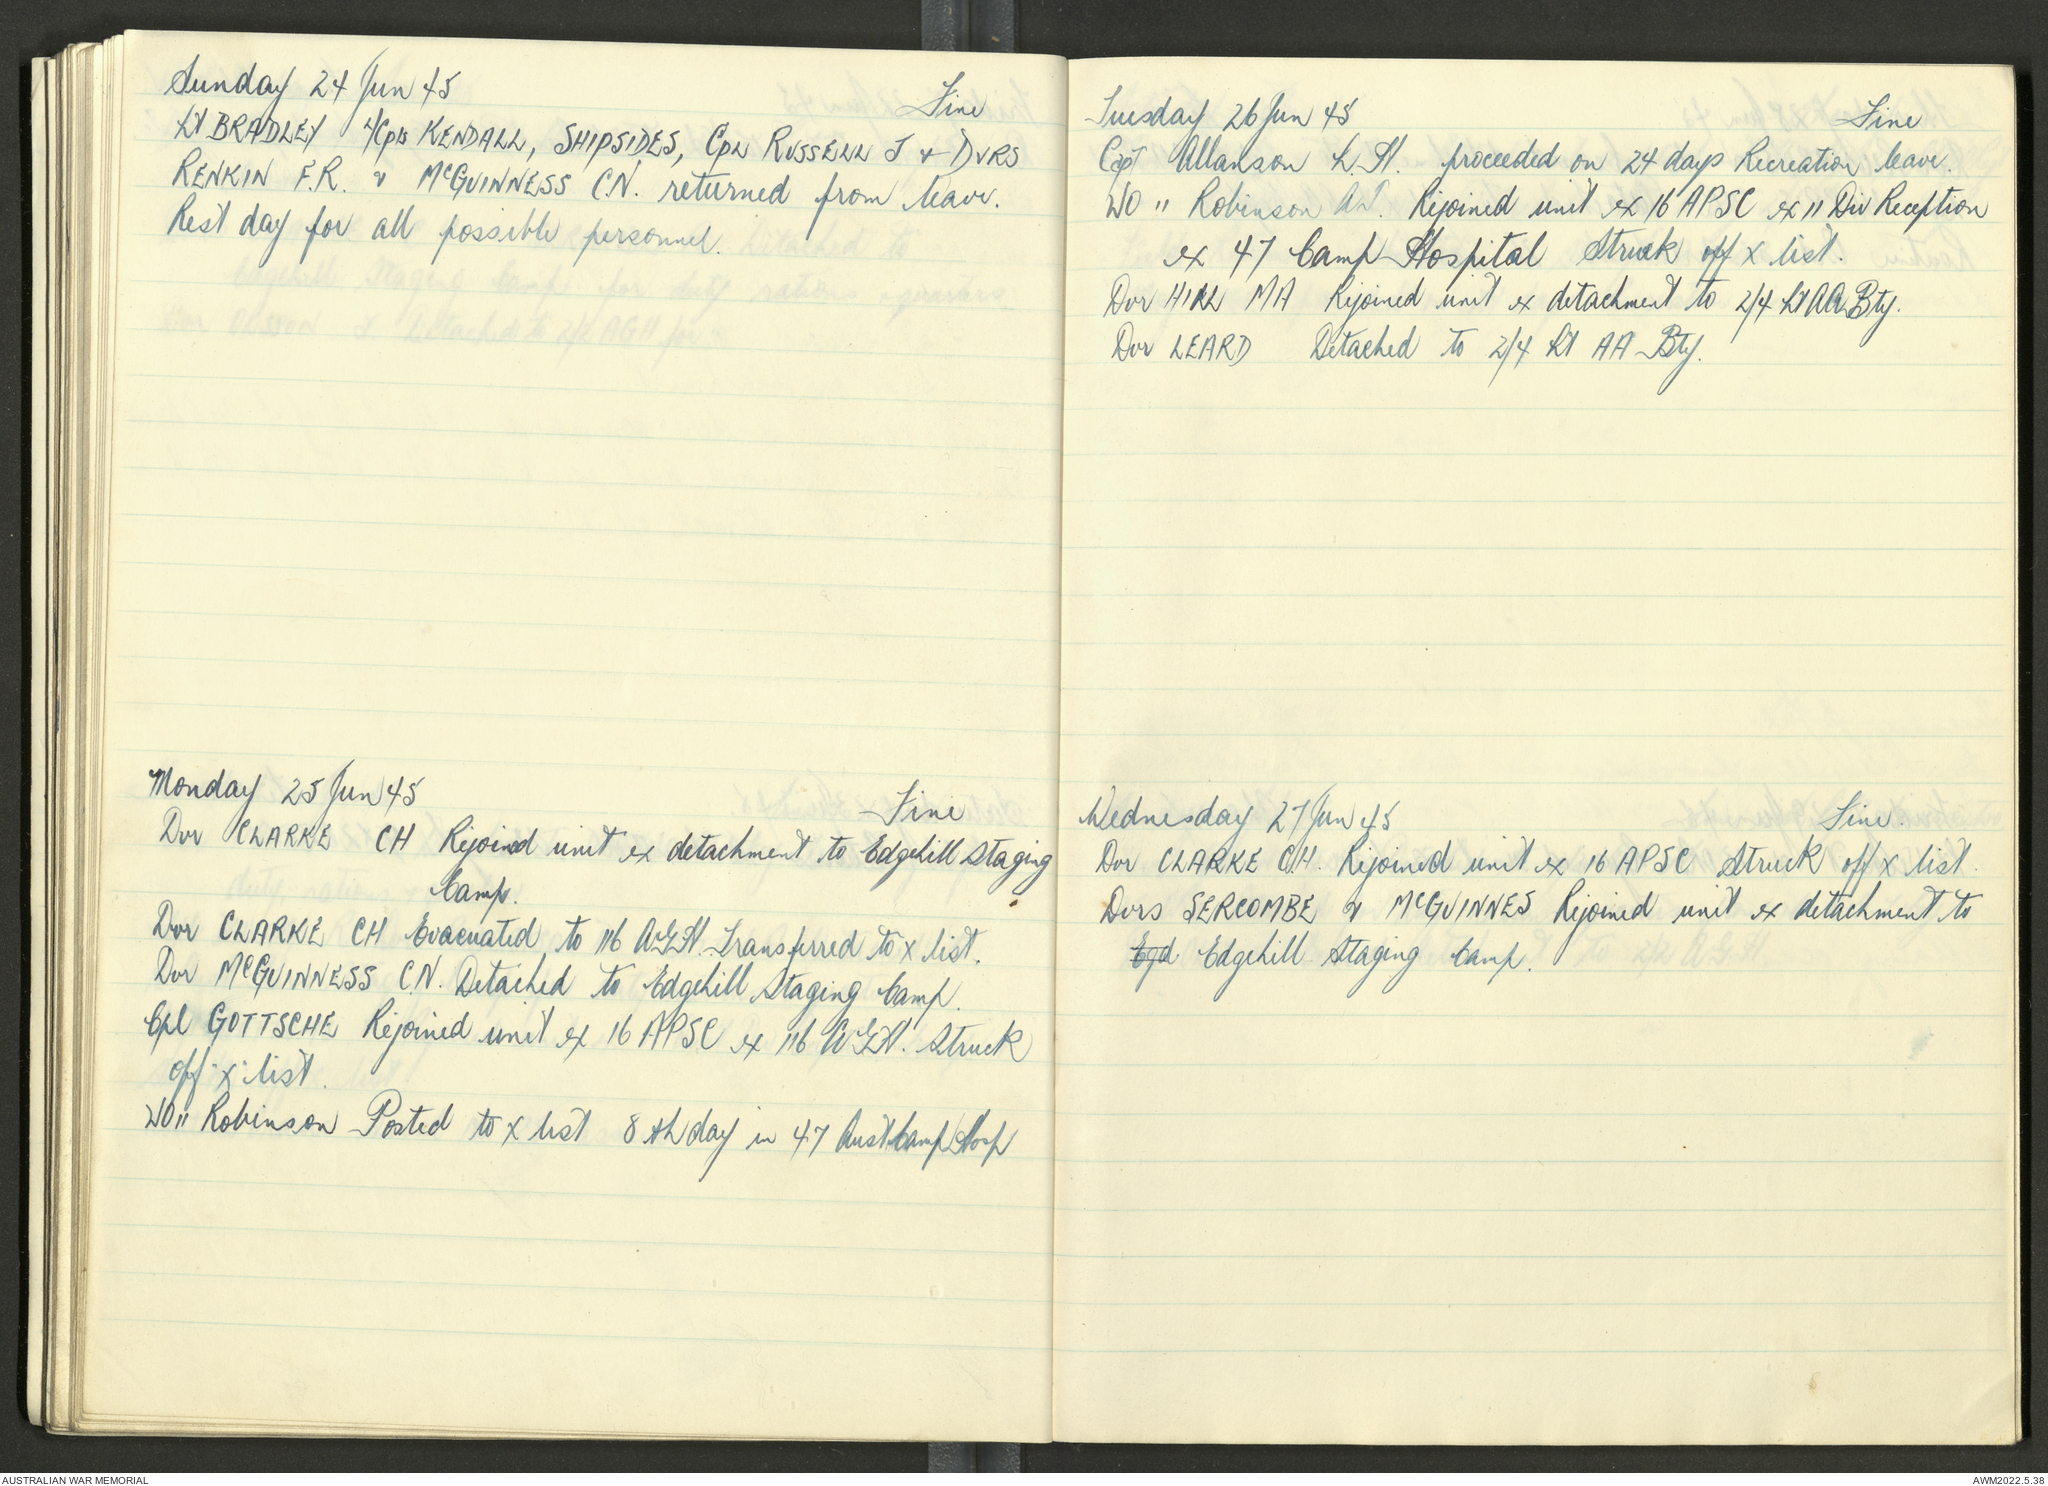 Sunday 24 Jun 45
Fine
Lt BRADLEY L/Cpls KENDALL, SHIPSIDES, CPL RUSSELL J & DVRS
RENKIN F.R. & McGUINNESS C.N. returned from leave.
Rest day for all possible personnel.
Monday 25 Jun 45
Fine
Dvr CLARKE CH Rejoined unit ex detachment to Edgehill Staging
Camp.
Dvr CLARKE CH Evacuated to 116 A.G.H. Transferred to x list.
Dvr McGUINNESS C.N. Detached to Edgehill Staging Camp.
Cpl GOTTSCHE Rejoined unit ex 16 APSC ex 116 A.G.H. Struck
off "x" list.
WO II Robinson Posted to x list 8th day in 47 Aust Camp Hosp
Tuesday 26 Jun 45
Fine
Capt Allanson L.H. proceeded on 24 days Recreation leave.
WO II Robinson A.J. Rejoined unit ex 16 APSC ex 11 Div Reception
ex 47 Camp Hospital Struck off x list.
Dvr HILL MA Rejoined unit ex detachment to 2/4 Lt AA Bty.
Dvr LEARD Detached to 2/4 Lt AA Bty.
Wednesday 27 Jun 45
Fine.
Dvr CLARKE C.H. Rejoined unit ex 16 APSC Struck off x list.
Dvrs SERCOMBE & McGUINNES Rejoined unit ex detachment to
Egd Edgehill Staging Camp.
AUSTRALIAN WAR MEMORIAL
AWM2022.5.38